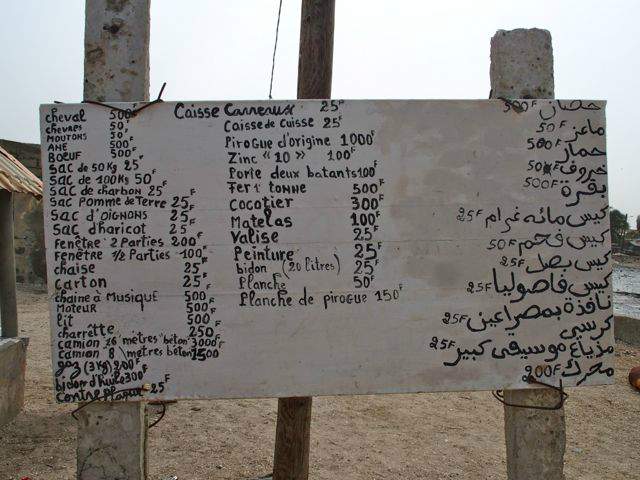 cheval 500F
chevres 50F
MOUTONS 50F
ANE 500F
BOEUF 500F
SAC de 50 Kg 25
SAC de 100 Kg 50F
SAC de charbon 25F
SAC POMME de TERRE 25F
SAC d'OIGNONS 25F
SAC d'haricot 25F
FENÊTRE 2 PARTIES 200F
FENÊTRE 1/2 PARTIES 100F
chaise 25F
CARTON 25F
chaine à MUSIQUE 500F
MOTEUR 500F
Lit 500F
charrette 250F
camion 16 mètres "béton" 3000F
camion 8 mètres béton 1500F
gaz (3 Kg) 200F
bidon d'huile 300F
contre plaqué 25F
Caisse Carreaux 25F
Caisse de Cuisse 25F
Pirogue d'origine 1000F
Zinc "10" 100F
Porte deux batants 100F
Fer 1 tonne 500F
Cocotier 300F
Matelas 100F
Valise 25F
Peinture 25F
bidon (20 Litres) 25F
Planche 50F
Planche de pirogue 150F
حصان 500F
ماعز 50F
حمار 500F
خروف 50F
بقرة 500F
كيس مائه غرام 25F
كيس فحم 50F
كيس بصل 25F
كيس فاصوليا 25F
نافذة بمصراعين 25F
كرسي
مذياع موسيقى كبير 25F
محرك 200F